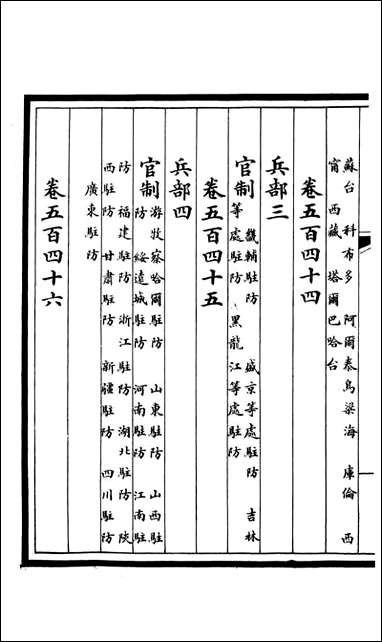 蘇台 科布多 阿爾泰烏梁海 庫倫 西
甯 西藏 塔爾巴哈台
卷五百四十四
兵部三
官制 畿輔駐防 盛京等處駐防 吉林
等處駐防 黑龍江等處駐防
卷五百四十五
兵部四
官制 游牧察哈爾駐防 山東駐防 山西駐
防 綏遠城駐防 河南駐防 江南駐
防 福建駐防 浙江駐防 湖北駐防 陝
西駐防 甘肅駐防 新疆駐防 四川駐防
廣東駐防
卷五百四十六